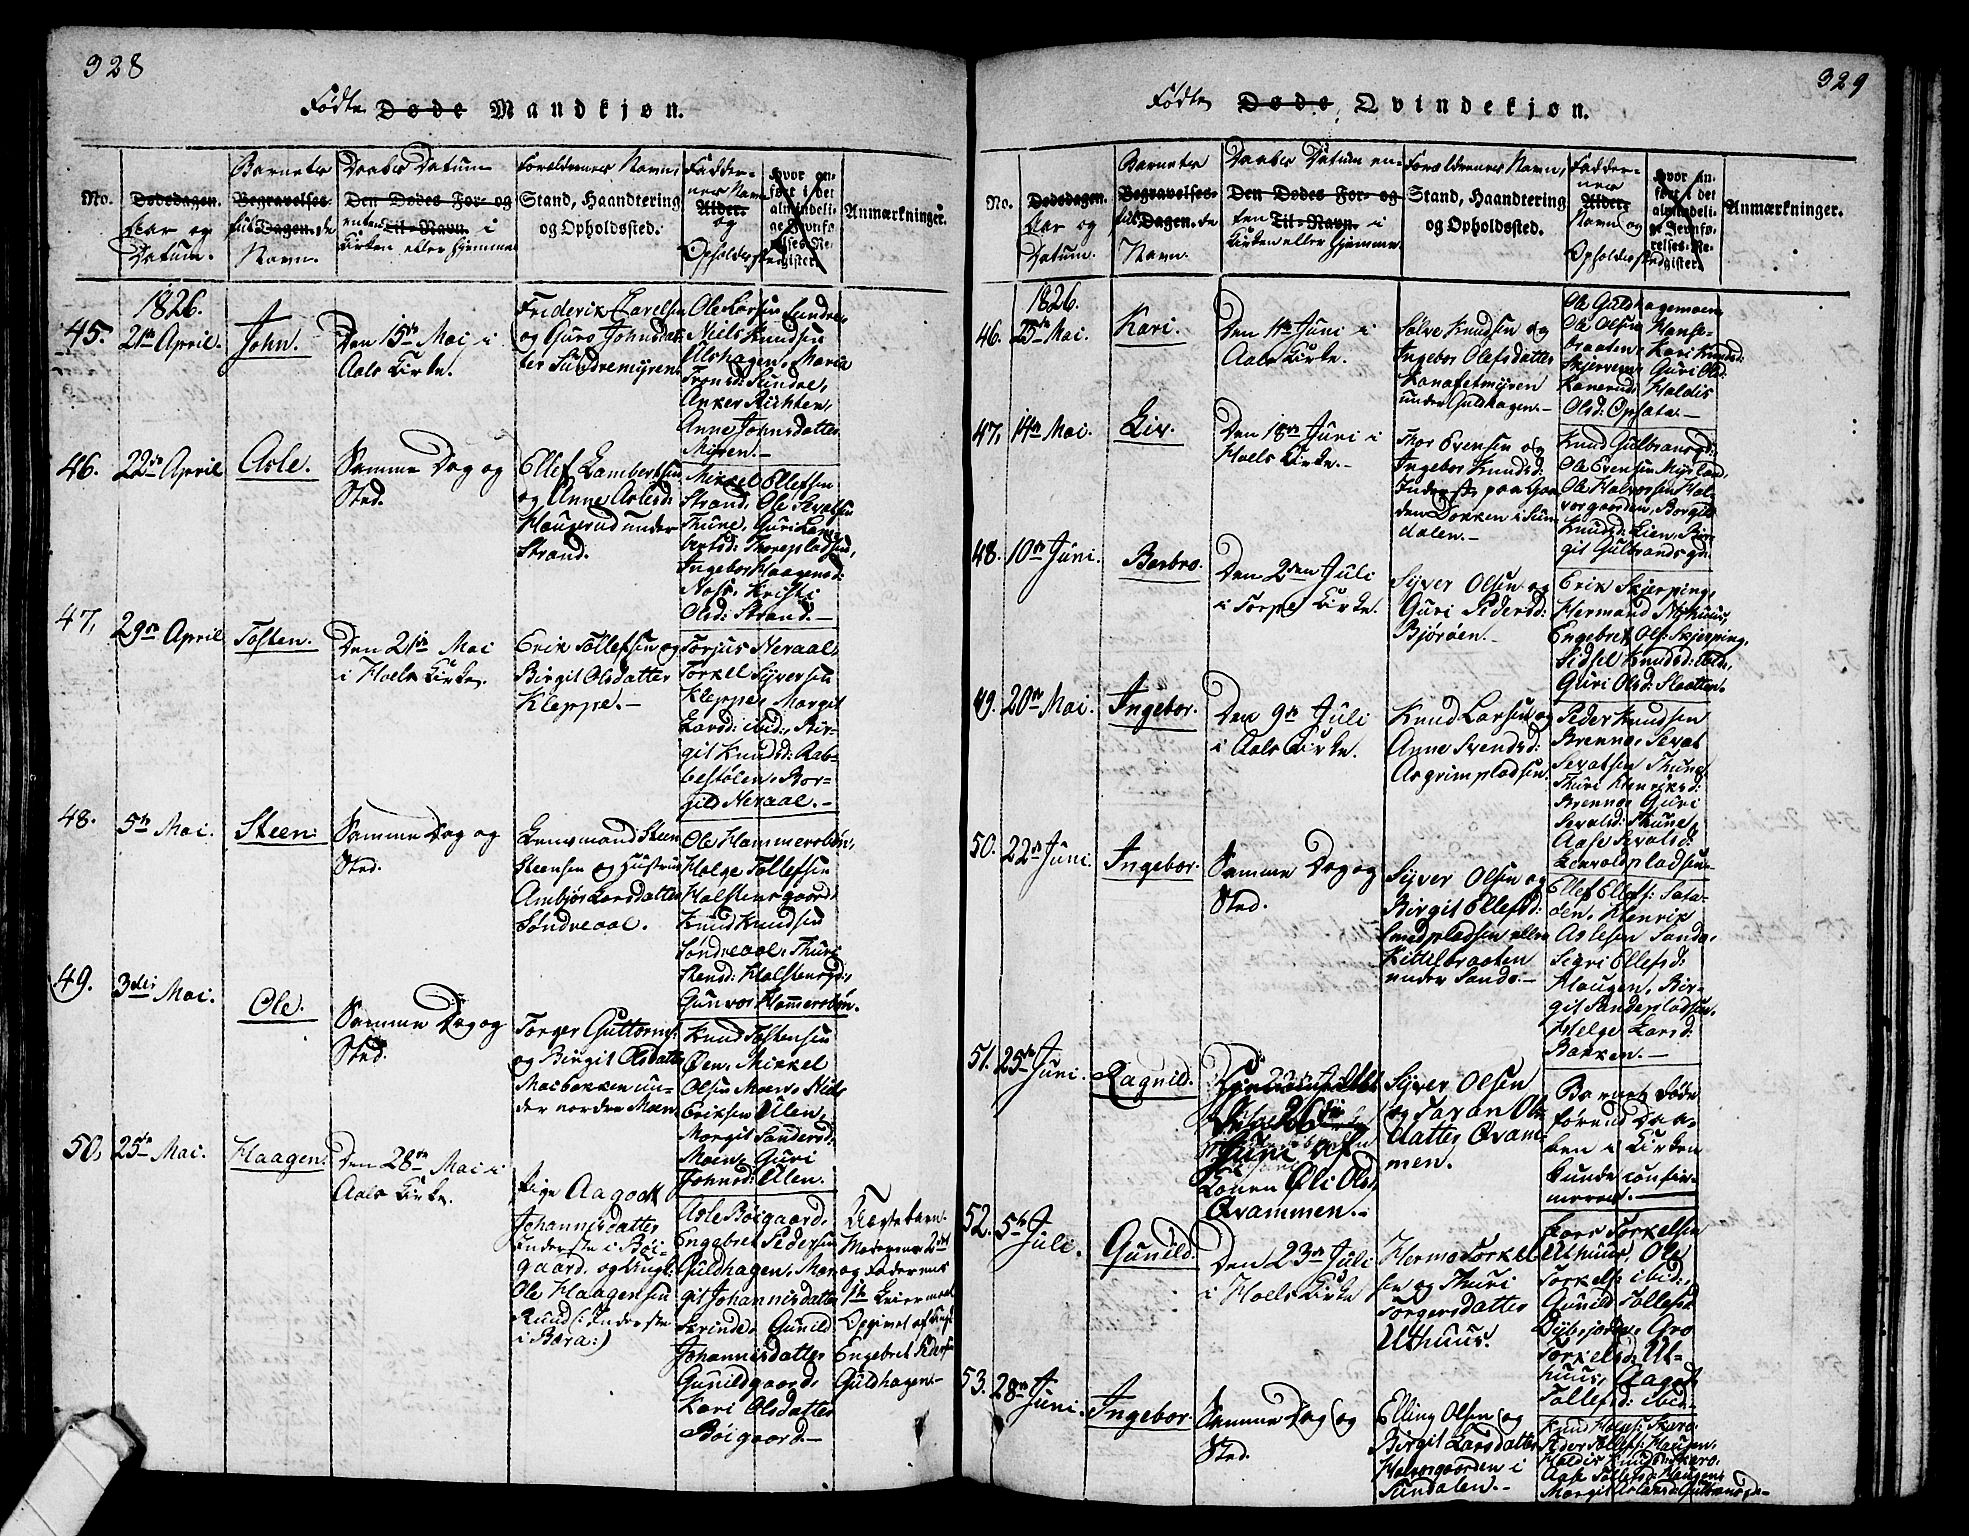 328
Fødte Døde Mandkjøn.
No.
Dødedagen.
Aar og
Datum.
Barnets
Begravelses-
Dagen.
Navn.
Daabs Datum
Den Dødes For- og
Til-Navn. i
Kirken eller Hjemme
Forældrenes Navn,
Stand, Haandtering
og Opholdssted.
Fadder-
nes Navn
Alder.
og
Opholdssted
Hvor an-
ført i det
almindeli-
ge Jevnfø-
relses-Re-
gister.
Anmærkninger.
1826.
45.
21de April.
John.
Den 15de Mai i
Aals Kirke.
Friderik Carelsen
og Guro Johnsdat-
ter Sundremyren
Ole Larsen Sundre,
Niels Knudsen
Ulshagen, Maria
Tronsd: Sundre,
Anker Richter,
Anne Johnsdatter
Myren.-
46.
22de April
Asle.
Samme Dag og
Sted.
Ellef Lambertsen
og Anne Aslesd:
Haugerud under
Strand.
Mikkel Ellefsen
Strand, Ole Sevatsen
Thune, Guri Lam-
bertsd: Thorepladsen,
Ingebor Haagensd:
Noss, Kristi
Olsd: Strand.-
47.
29de April
Tosten.
Den 21de Mai
i Hols Kirke.
Erik Tollefsen og
Birgit Olsdatter
Kleppe.-
Torjus Neraal,
Torkel Syversen
Kleppe, Margit
Larsd: ibid:, Bir-
git Knudsd: Rab-
bestølen, Bor-
gild Neraal.-
48.
5te Mai.
Steen.
Samme Dag og
Sted.
Lensmand Steen
Steensen og Hustrue
Ambjør Larsdatter
Søndreaal.
Ole Hammersbøn,
Helge Tollefsen
Holstensgaard,
Knud Knudsen
Søndreaal, Thuri
Stensd: Holstensgd:,
Gunvor Hammersbøn.
49.
3die Mai.
Ole.
Samme Dag og
Sted.
Torger Guttorms:
og Birgit Olsdatter
Moebakken un-
der nordre Moen
Knud Tostensen
Øen, Mikkel
Olsen Moen, Niels
Eriksen Ulen,
Margit Sandersd:
Moen, Guri
Johnsd: Ulen.
50.
25de Mai.
Haagen.
Den 28de Mai i
Aals Kirke.
Pige Aagodt
Johannisdatter
Inderste i Böi-
gaard. og Ungk:
Ole Haagensen
Ruud (: Inderste
i Bæra:)
Asle Böigaard,
Engebret Pedersen
Guldhagen, Mar-
git Johannisdatter
Skrinde, Gunild
Johannisdatter
Gunildgaard,
Kari Olsdatter
Böigaard.-
Uægte barn.
Moderens 2det
og Faderens
1ste Leiermaal
Opgivet af
Engebret Peders:
Guldhagen.-
329
Fødte Døde Qvindekjøn.
No.
Dødedagen.
Aar og
Datum.
Barnets
Begravelses-
Dagen.
Navn.
Daabs Datum en-
Den Dødes For- og
ten Til-Navn. i
Kirken eller Hjemme
Forældrenes Navn,
Stand, Haandtering
og Opholdssted.
Fadder-
nes
Alder.
Navn og
Opholdssted
Hvor an-
ført i det
almindeli-
ge Jevnfø-
relses-Re-
gister.
Anmærkninger.
1826.
46.
25de Mai.
Kari.
Den 11te Juni i
Aals Kirke.
Salve Knudsen og
Ingebor Olefsdatter
Kanafetmyren
under Guldhagen.-
Ole Guldhagemoen,
Ole Olsen Hanse-
braaten, Kari Knudsd:
Skjerven, Guri Olsd:
Kanerud, Haldis
Olsd: Opsata.-
47.
14de Mai.
Liv.
Den 18de Juni i
Hols Kirke.-
Thor Evensen og
Ingebor Knudsd:
Inderste paa Gaar-
den Dokken i Sun-
dalen.-
Knud Gulbransgd:
Ole Evensen Myrland,
Ole Halvorsen Hal-
vorgaarden, Borgild
Knudsd: Lien, Bir-
git Gulbrandsgd:
48.
10de Juni.
Barbro.
Den 2den Juli
i Torpe Kirke.
Syver Olsen og
Guri Pedersd:
Bjøröen.-
Erik Skjerping,
Hermand Nyhuus,
Engebret Ols: Skjerping,
Sidsel Knudsd: ibid:,
Guri Olsd: Slaatten.
49.
20de Mai.
Ingebor.
Den 9de Juli
i Aals Kirke.
Knud Larsen og
Anne Svendsd:
Asgrimpladsen.
Peder Knudsen
Brenno, Sevat
Sevatsen Thune,
Thuri Henriksd:
Brenno, Guri
Sevatsd: Thune,
Aase Sevatsd:
Leksvoldpladsen.
50.
22de Juni.
Ingebor.
Samme Dag og
Sted.
Syver Olsen og
Birgit Ellefsd:
Sandpladsen eller
Kittelbraaten
under Sando.-
Ellef Ellefs: Sata-
den, Henrik
Aslesen Sando,
Sigri Ellefsd:
Haugen, Bir-
git Sandepladsen,
Helge Larsd:
Bakken.-
51.
25de Juni.
Ragnild.
26de
Juni af
Konen Øli Olsd:
Qvammen.-
Syver Olsen
og Taran Ols-
datter Qvam-
men.
Barnet døde
førend Daa-
ben i Kirken
kunde confir-
meres.-
52.
5te Juli.
Gunild.
Den 23de Juli
i Hols Kirke
Hermo Torkel-
sen og Thuri
Torgersdatter
Uthuus.
Lars Torkelsen
Uthuus, Ole
Torkels: ibid:,
Gunild Tollefsd:
Dybesjoden, Gro
Torkelsd: Ut-
huus, Aagodt
Tollefsd: ibid:
53.
28de Juni.
Ingebor.
Samme Dag og
Sted.
Elling Olsen og
Birgit Larsdatter
Halvorgaarden i
Sundalen.-
Knud Holgs: Skuro,
Peder Tollefs: Haugen,
Haldis Knudsd: Skuro,
Aase Tollefsd: Haugen,
Margit Aslesd: Gulbransgd:-